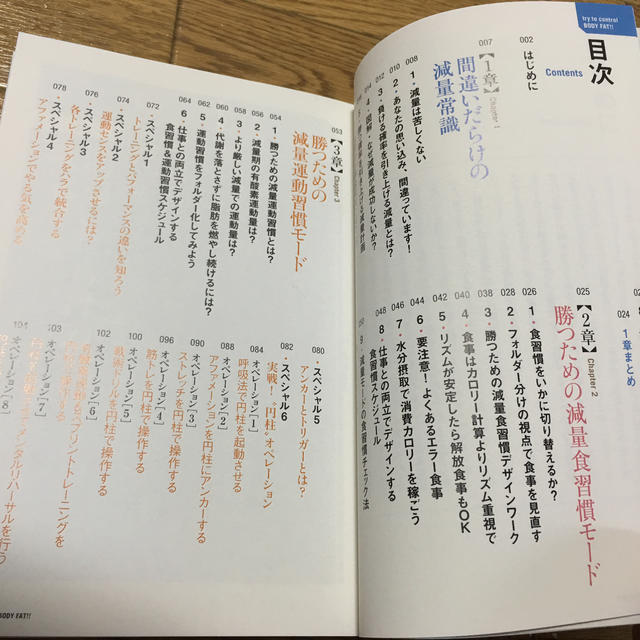 try to control
BODY FAT!!
目次
Contents
002
はじめに
007
【1章】Chapter 1
間違いだらけの
減量常識
008
1・減量は苦しくない
2・あなたの思い込み、間違っています!
3・負ける確率を引き上げる減量とは?
4・図解 なぜ減量が成功しないか?
024
1章まとめ
025
【2章】Chapter 2
勝つための減量食習慣モード
026
1・食習慣をいかに切り替えるか?
028
2・フォルダー分けの視点で食事を見直す
038
3・勝つための減量食習慣デザインワーク
040
4・食事はカロリー計算よりリズム重視で
042
5・リズムが安定したら解放食事もOK
044
6・要注意!よくあるエラー食事
046
7・水分摂取で消費カロリーを稼ごう
048
8・仕事との両立でデザインする
食習慣スケジュール
050
9・減量モードの食習慣チェック法
053
【3章】Chapter 3
勝つための
減量運動習慣モード
054
1・勝つための減量運動習慣とは?
056
2・減量期の有酸素運動量は?
058
3・より厳しい減量での運動量は?
060
4・代謝を落とさずに脂肪を燃やし続けるには?
062
5・運動習慣をフォルダー化してみよう
064
6・仕事との両立でデザインする
食習慣&運動習慣スケジュール
072
・スペシャル1
トレーニングとパフォーマンスの違いを知ろう
074
・スペシャル2
運動センスをアップさせるには?
076
・スペシャル3
各トレーニングをヘラで統合する
078
・スペシャル4
アファメーションでやる気を高める
080
・スペシャル5
アンカーとトリガーとは?
082
・スペシャル6
実戦!・円柱 オペレーション
084
オペレーション[1]
呼吸法で円柱を起動させる
088
オペレーション[2]
アファメーションを円柱にアンカーする
090
オペレーション[3]
ストレッチを円柱で操作する
096
オペレーション[4]
筋トレを円柱で操作する
100
オペレーション[5]
102
オペレーション[6]
103
オペレーション[7]
104
オペレーション[8]
メンタルリハーサルを行う
BODY FAT!!